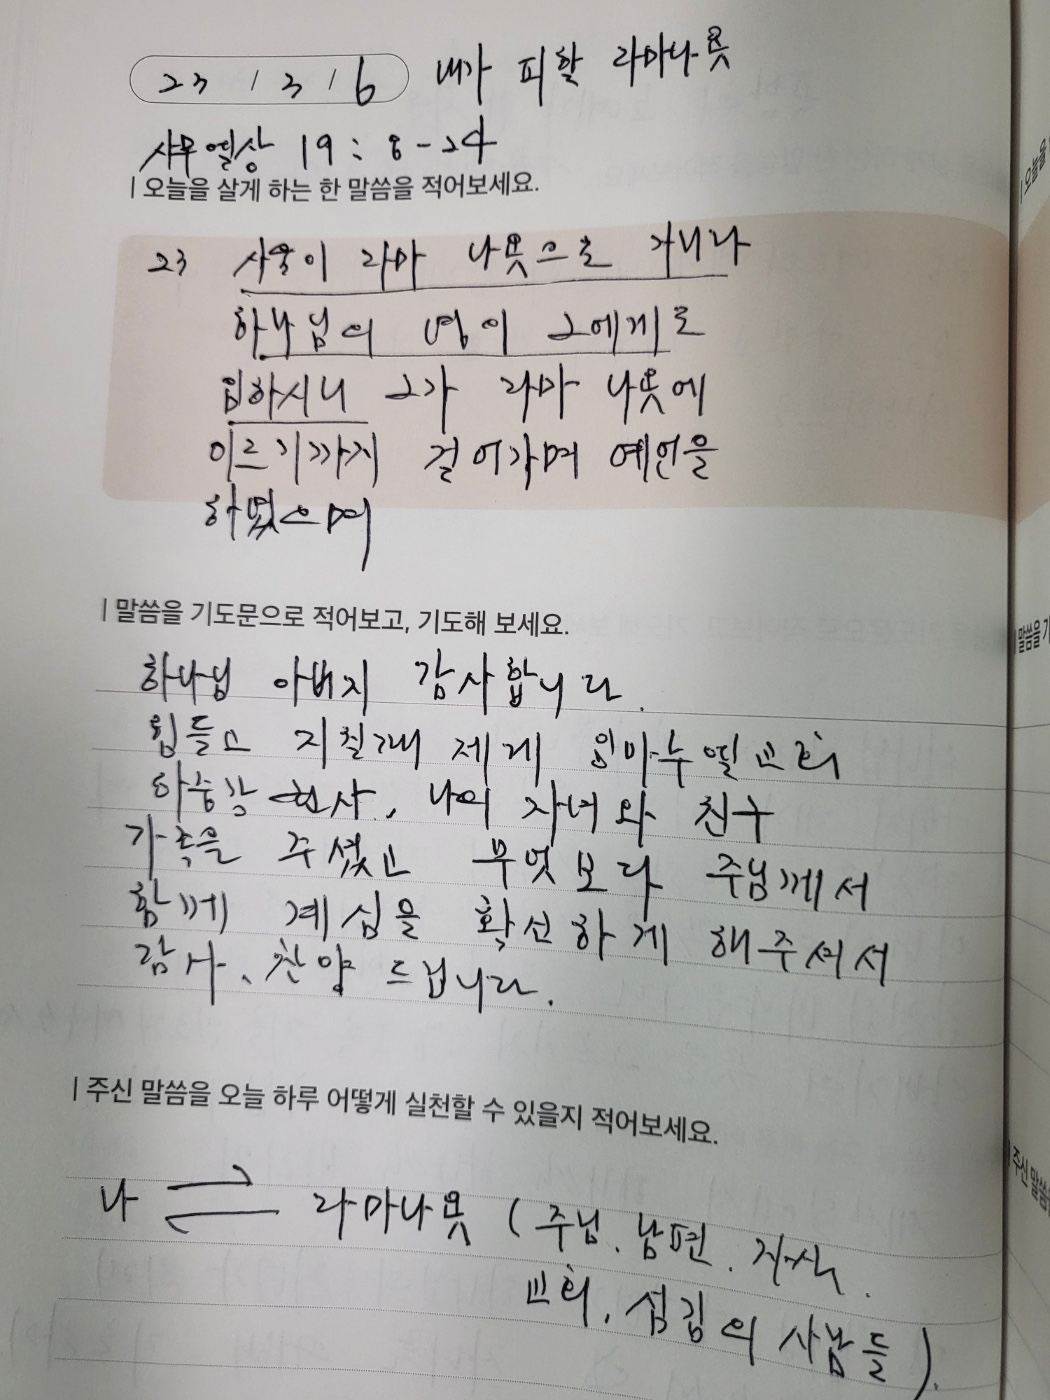 23 / 3 / 6 내가 피할 라마나욧
사무엘상 19 : 8 - 24
| 오늘을 살게 하는 한 말씀을 적어보세요.
23 사울이 라마 나욧으로 가니라
하나님의 영이 그에게도
임하시니 그가 라마 나욧에
이르기까지 걸어가며 예언을
하였으며
| 말씀을 기도문으로 적어보고, 기도해 보세요.
하나님 아버지 감사합니다.
힘들고 지칠때 제게 임마누엘교회
나의 자녀와 친구
가족을 주셨고 무엇보다 주님께서
함께 계심을 확신하게 해주셔서
감사, 찬양 드립니다.
| 주신 말씀을 오늘 하루 어떻게 실천할 수 있을지 적어보세요.
나 라마나욧 ( 주님, 남편, 자식,
교회, 섬김의 사람들 ).